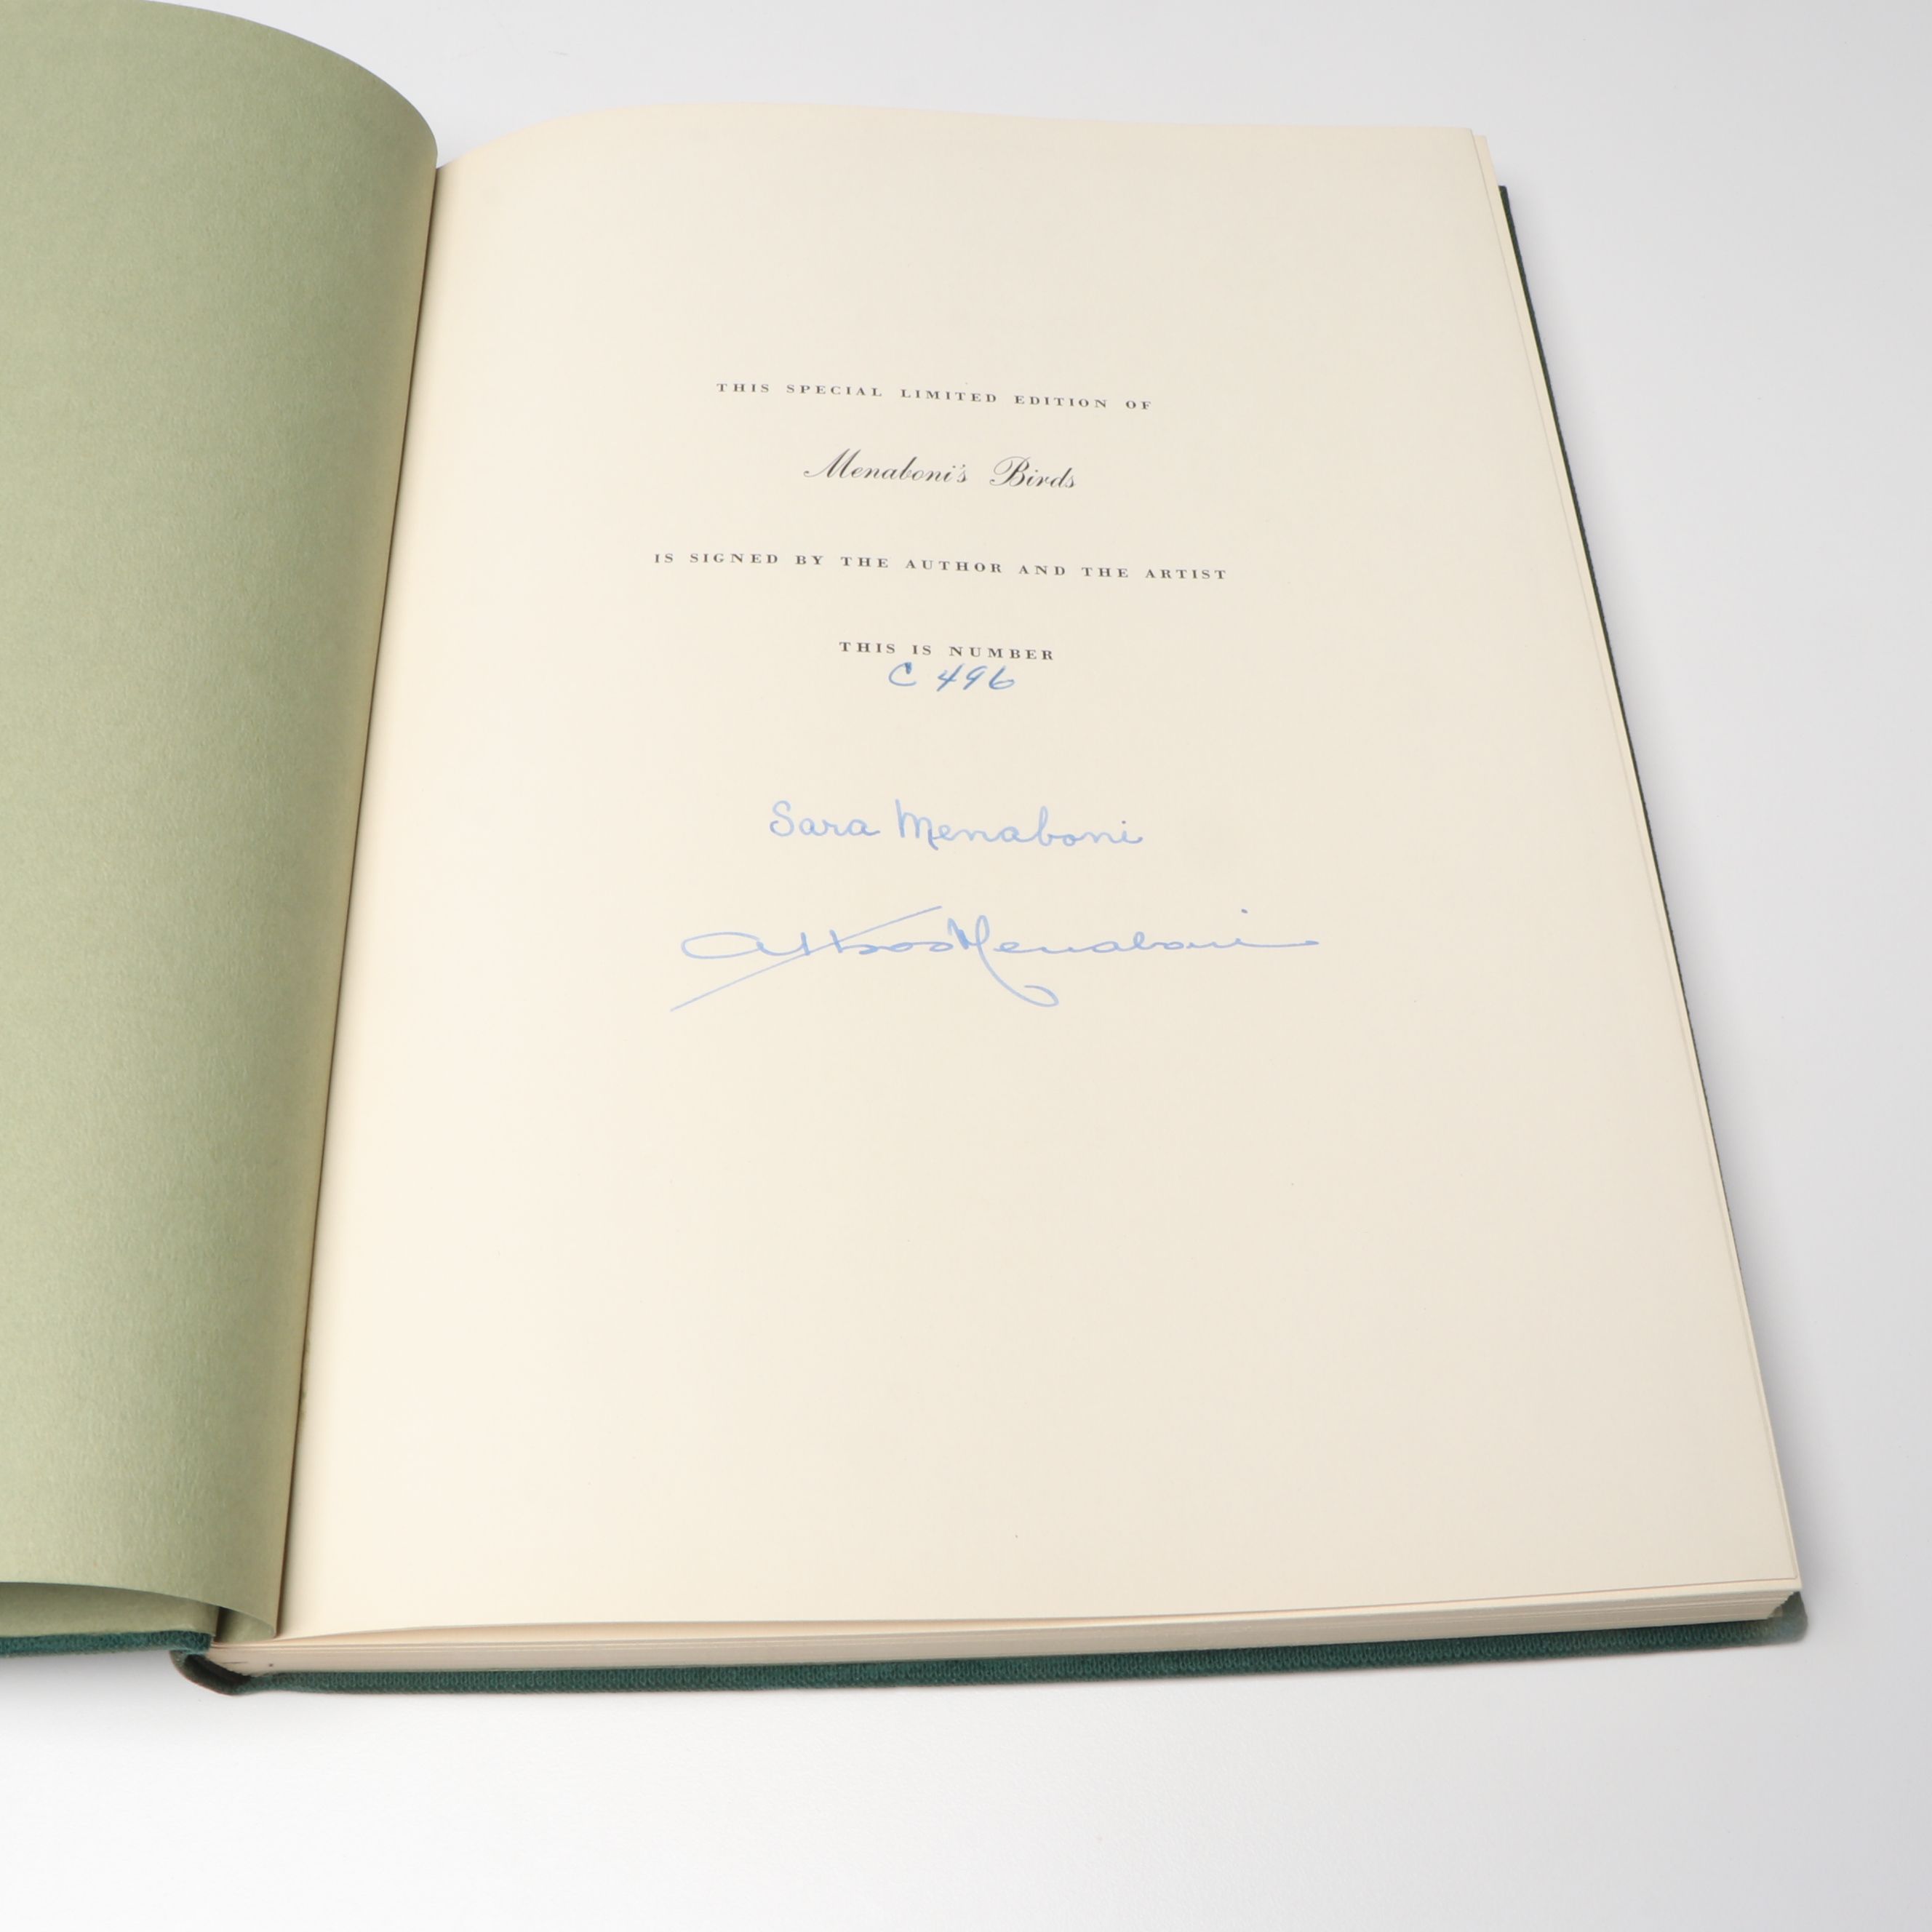 THIS SPECIAL LIMITED EDITION OF
Menaboni's Birds
IS SIGNED BY THE AUTHOR AND THE ARTIST
THIS IS NUMBER
C 496
Sara Menaboni
Athos Menaboni